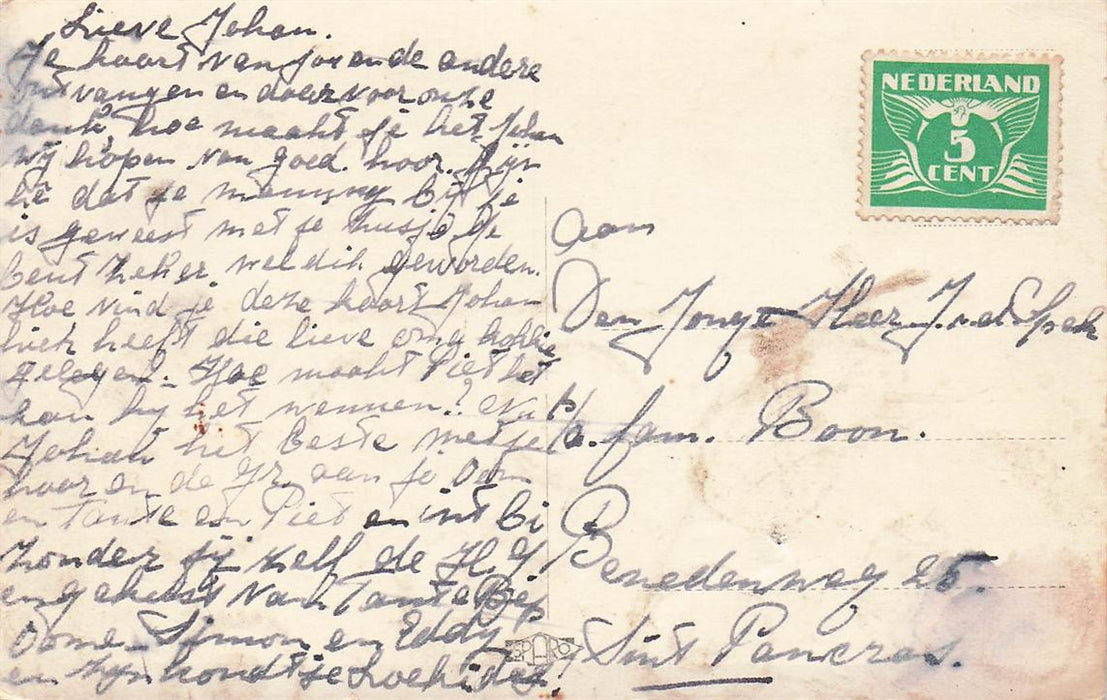 Lieve Johan.
Je kaart van jou en de andere
ontvangen en daarvoor onze
dank, hoe maakt je het Johan
wij hopen van goed hoor. Fijn
hè dat je mammy bij je
is geweest met je zusje Je
bent zeker wel dik geworden.
Hoe vind je deze kaart Johan
heeft die lieve oma
gelegen. Hoe maakt Piet het
kan hij het wennen? Nu
Johan het beste met je
hoor en de gr. van je Oom
en Tante en Piet en int bi
zonder jij zelf de H. g
en gekust van Tante Bep
Oome Simon en Eddy
en zijn hondtje
NEDERLAND
5
CENT
Aan
Den Jonge Heer J. v. d. Spek
p/a. fam. Boon.
Benedenweg 25.
Sint Pancras.
SPARO